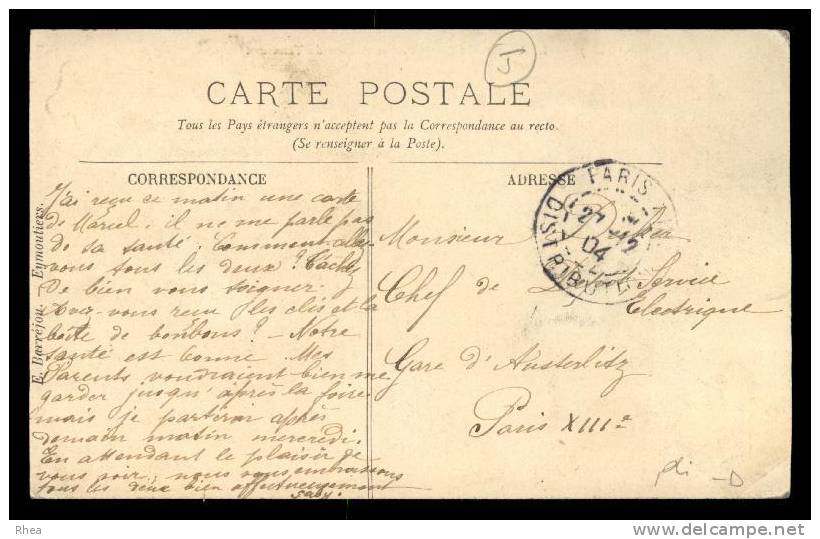 5
CARTE POSTALE
Tous les Pays étrangers n'acceptent pas la Correspondance au recto.
(Se renseigner à la Poste).
CORRESPONDANCE
ADRESSE
E. Barréjou. - Eymoutiers.
J'ai reçu ce matin une carte
de Marcel. il ne me parle pas
de sa santé. Comment allez
vous tous les deux? Tachez
de bien vous soigner.
Avez vous reçu les clés et la
boîte de bonbons? - Notre
santé est bonne. Mes
Parents voudraient bien me
garder jusqu'après la foire
mais je partirai après
demain matin mercredi.
En attendant le plaisir de
vous voir, nous vous embrassons
tous les deux bien affectueusement
Gaby.
Monsieur
Chef de Service
Electrique
Gare d'Austerlitz
Paris XIIIe
PARIS
27
04
DISTRIBUTION
pli - D
Rhea
www.delcampe.net